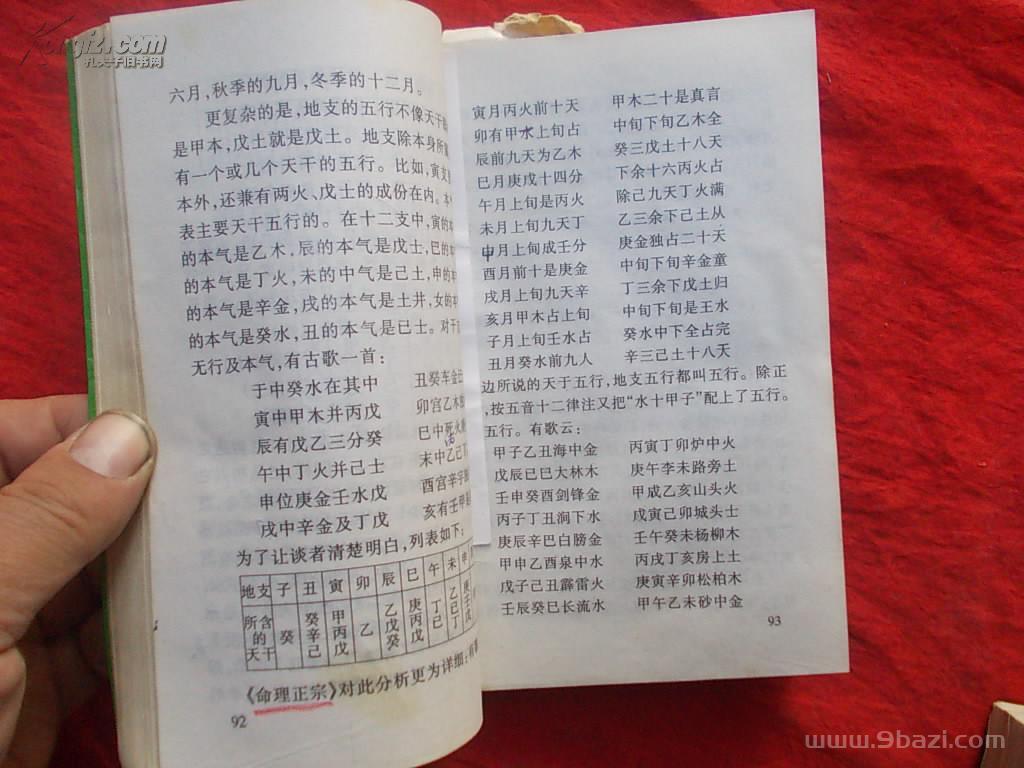 Kongfz.com
孔夫子旧书网
六月,秋季的九月,冬季的十二月。
更复杂的是,地支的五行不像天干
是甲本,戊土就是戊土。地支除本身所
有一个或几个天干的五行。比如,寅支
本外,还兼有两火、戊士的成份在内。本
表主要天干五行的。在十二支中,寅的本
的本气是乙木,辰的本气是戊士,巳的本
的本气是丁火,未的中气是己土,申的本
的本气是辛金,戌的本气是土井,女的本
的本气是癸水,丑的本气是已士。对于
无行及本气,有古歌一首:
于中癸水在其中 丑癸车金
寅中甲木并丙戊 卯宫乙木
辰有戊乙三分癸 巳中
午中丁火并己士 末中乙己
申位庚金壬水戊 酉宫辛字
戌中辛金及丁戊 亥有壬甲
为了让谈者清楚明白,列表如下:
地支 子 丑 寅 卯 辰 巳 午 未 申
所含的天干 癸 癸辛己 甲丙戊 乙 乙戊癸 庚丙戊 丁已 乙已丁 庚壬戊
《命理正宗》对此分析更为详细:
92
寅月丙火前十天 甲木二十是真言
卯有甲水上旬占 中旬下旬乙木全
辰前九天为乙木 癸三戊土十八天
巳月庚戊十四分 下余十六丙火占
午月上旬是丙火 除己九天丁火满
未月上旬九天丁 乙三余下己土从
申月上旬成壬分 庚金独占二十天
酉月前十是庚金 中旬下旬辛金童
戌月上旬九天辛 丁三余下戊土归
亥月甲木占上旬 中旬下旬是王水
子月上旬壬水占 癸水中下全占完
丑月癸水前九人 辛三己土十八天
边所说的天于五行,地支五行都叫五行。除正
,按五音十二律注又把“水十甲子”配上了五行。
五行。有歌云:
甲子乙丑海中金 丙寅丁卯炉中火
戊辰已巳大林木 庚午李未路旁土
壬申癸酉剑锋金 甲成乙亥山头火
丙子丁丑涧下水 戊寅己卯城头士
庚辰辛巴白膀金 壬午癸未杨柳木
甲申乙酉泉中水 丙戌丁亥房上土
戊子己丑霹雷火 庚寅辛卯松柏木
壬辰癸巳长流水 甲午乙未砂中金
93
www.9bazi.com